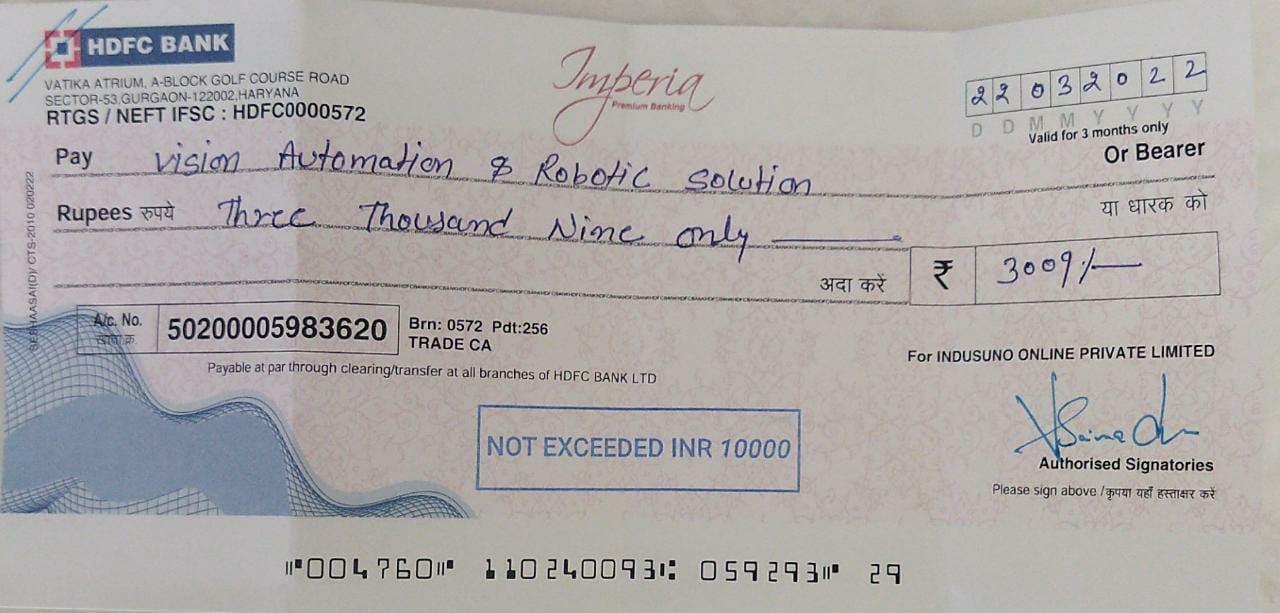 HDFC BANK
VATIKA ATRIUM, A-BLOCK GOLF COURSE ROAD
SECTOR-53,GURGAON-122002,HARYANA
RTGS / NEFT IFSC : HDFC0000572
Imperia
Premium Banking
22032022
D D M M Y Y Y Y
Valid for 3 months only
Pay Vision Automation & Robotic Solution Or Bearer
Rupees रुपये Three Thousand Nine only या धारक को
अदा करें ₹ 3009/-
A/c. No. 50200005983620 Brn: 0572 Pdt:256
खाता क्र. TRADE CA
Payable at par through clearing/transfer at all branches of HDFC BANK LTD
For INDUSUNO ONLINE PRIVATE LIMITED
NOT EXCEEDED INR 10000
Authorised Signatories
Please sign above /कृपया यहाँ हस्ताक्षर करें
⑈004760⑈ 110240093⑆ 059293⑈ 29